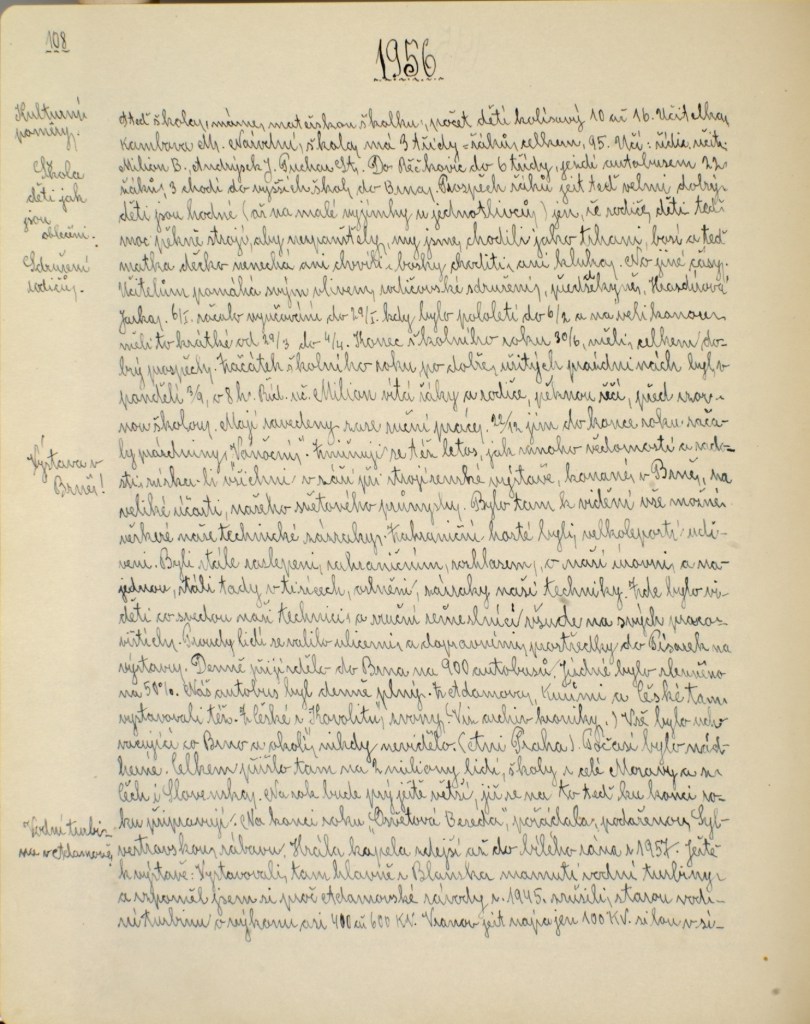 108
1956
Kulturní
poměry.
Škola
děti jak
jsou
oblečeni.
Sdružení
rodičů.
Teď škola, máme mateřskou školku, počet dětí kolísavý 10 až 16. Učitelka
Kambova M. Národní škola má 3 třídy = žáků celkem 95. Učí: řídíc. učit.
Milion B., Andrýsek J. Puchar St. Do Řečkovic do 6 třídy, jezdí autobusem 22
žáků, 3 chodí do vyšších škol, do Brna. Prospěch žáků jest teď velmi dobrý
děti jsou hodné (až na malé vyjímky u jednotlivců) jen, že rodiče, děti teď
moc pěkně strojí, aby neupamětely, my jsme chodili jako trhani, bosí a teď
matka děcko nenechá ani chvilku bosky choditi, ani kluka. No jiné časy.
Učitelům pomáhá svým vlivem, rodičovské sdružení, předsedkyně,
Jarka. 6/I. začalo vyučování do 29/I. kdy bylo pololetí do 6/2 a na velikonoce
měli to krátké od 29/3 do 4/4. Konec školního roku 30/6, měli, celkem do-
brý prospěch. Začátek školního roku po dobře, užitých prázdninách byl v
pondělí 3/9, o 8 h. Říd. uč. Milion vítá žáky a rodiče, pěknou řečí, před vzor-
nou školou. Mají zavedeny zase ruční práce. 22/12 jim do konce roku zača-
ly prázdniny "Vánoční". Zmiňuji se též letos, jak mnoho vědomostí a rado-
Výstava v
Brně!
sti získa-li všichni v září při strojírenské výstavě, konané v Brně, na
veliké účasti, našeho světového průmyslu. Bylo tam k vidění vše možné
veškeré naše technické zázraky. Zahraniční hosté byli, velkoleposti udi-
veni. Byli stále zaslepeni, zahraničním, rozhlasem, o naší úrovni, a na-
jednou, stáli tady v tisících, oslněni, zázraky naší techniky. Zde bylo vi-
děti co svedou naši technici, a ruční řemeslníci všude na svých praco-
vištích. Proudy lidí se valilo ulicemi a dopravními prostředky do Pisárek na
výstavu. Denně přijíždělo do Brna na 900 autobusů. Jízdné bylo sleveno
na 50%. Náš autobus byl denně plný. Z Adamova, Kuřimi a České tam
vystavovali též. Z České i "Kovolitů", zvony. (Viz archiv kroniky.) Vše bylo ucho-
vacující co Brno a okolí, nikdy nevidělo. (Ani Praha). Počasí bylo nád-
herné. Celkem přišlo tam na 2 miliony lidí, školy z celé Moravy a z
Čech i Slovenska. Na rok bude prý ještě větší, již se na to teď ku konci ro-
ku připravují. Na konci roku "Osvětová Beseda", pořádala, podařenou Syl-
Vodní turbí-
na v Adamově
vestrovskou, zábavu. Hrála kapela zdejší až do bílého rána r. 1957. Ještě
k výstavě: Vystavovali, tam hlavně z Blanska mamutí vodní turbiny
a vzpoměl jsem si proč Adamovské závody r. 1945. zrušili, starou vod-
ní turbinu o výkonu asi 400 až 600 KV. Vranov jest napájen 100 KV. silou v sí-